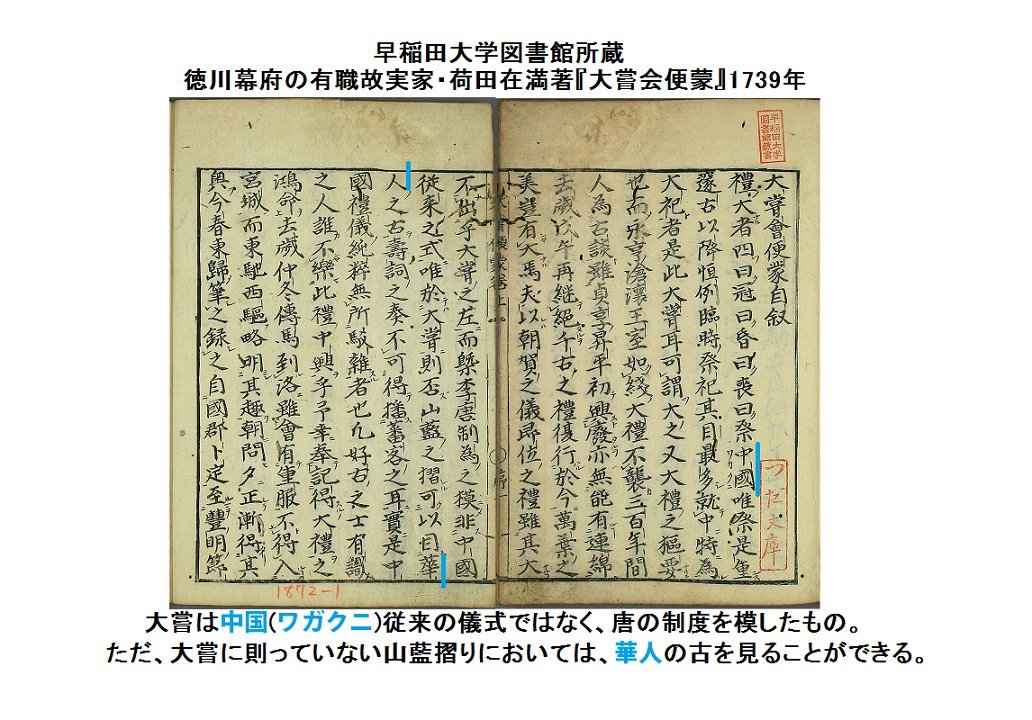 早稲田大学図書館所蔵
徳川幕府の有職故実家・荷田在満著『大嘗会便蒙』1739年
早稲田大学
圖書館蔵書
大嘗會便蒙自叙
禮大者四曰冠曰昏曰喪曰祭中國唯祭是重
ワガクニ
邃古以降恒例臨時祭祀其目最多就中特為
大祀者是此大嘗耳可謂大之又大禮之樞要
也而永亨滄瀼王室如綫大禮不襲二百年間
人為古談雖貞享昇平初興廢亦無能有連綿
去歳戊午再継絶千古之禮復行於今萬葉之
美豈有大焉夫以朝賀之儀即位之禮雖其大
つだ文庫
不出乎大嘗之左而槩李唐制為之模非中國
従来之式唯於大嘗則否山藍之摺可以目華
人之古壽詞之奏不可得播蕃客之耳實是中
國禮儀純粹無所駁雜者也凡好古之士有識
之人誰不樂此禮中興乎予幸奉記得大禮之
鴻命去歳仲冬傳馬到洛雖會有重服不得入
宮城而東馳西驅略明其趣朝問夕正漸得其
奥今春東歸筆之録之自國郡卜定至豐明節
1872-1
大嘗は中国(ワガクニ)従来の儀式ではなく、唐の制度を模したもの。
ただ、大嘗に則っていない山藍摺りにおいては、華人の古を見ることができる。